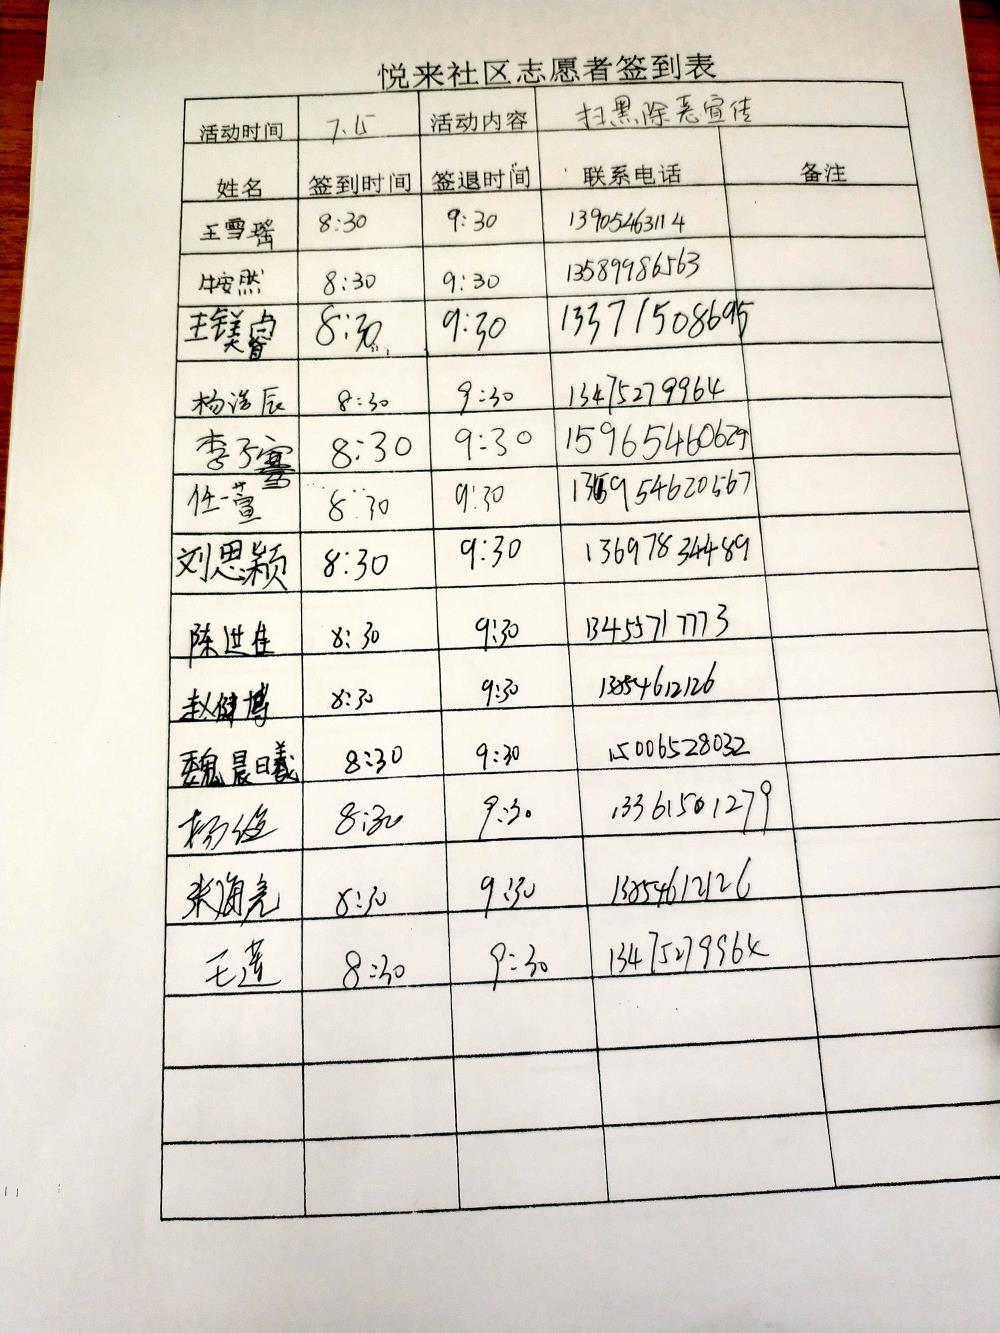 悦来社区志愿者签到表
活动时间 7.15 活动内容 扫黑除恶宣传
姓名 签到时间 签退时间 联系电话 备注
王雪瑶 8:30 9:30 13905463114
牛安然 8:30 9:30 13589986563
8:30 9:30 13371508695
杨浩辰 8:30 9:30 13475279964
李子 8:30 9:30 15965460629
任一萱 8:30 9:30
刘思颖 8:30 9:30 13697834489
陈进佳 8:30 9:30 13455717773
赵健博 8:30 9:30 13854612126
魏晨曦 8:30 9:30 15006528032
杨俊 8:30 9:30 13361501279
张海亮 8:30 9:30 13854612126
王莲 8:30 9:30 13475279964